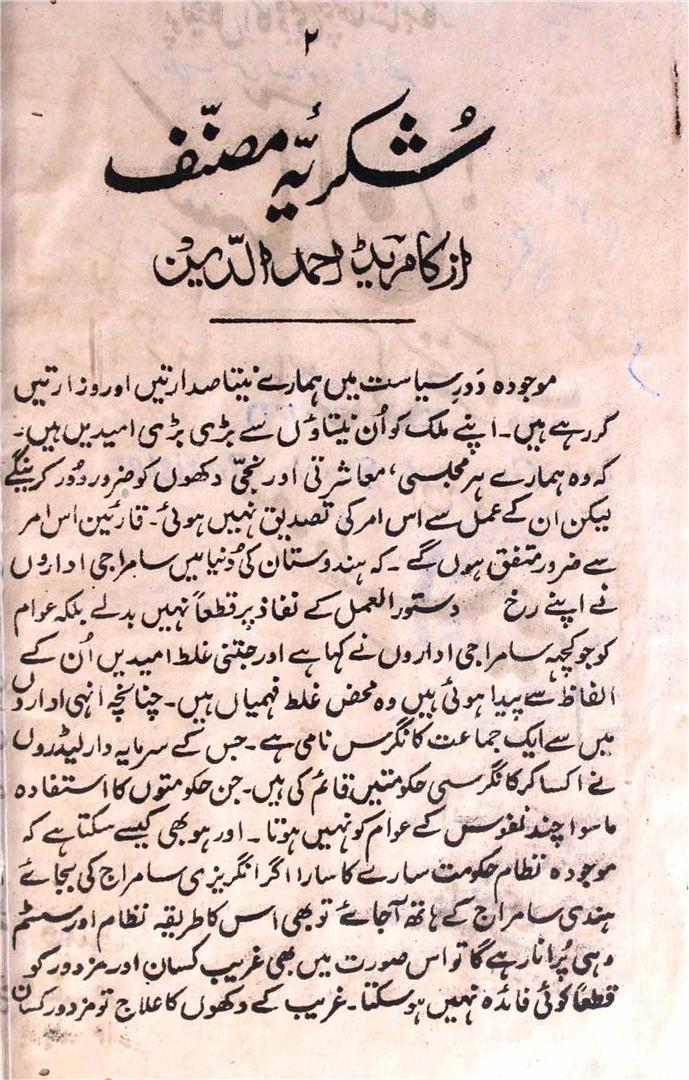 ۲
شکریۂ مصنّف
از کامریڈ احمد الدّین
موجودہ دَور سیاست میں ہمارے نیتا صدارتیں اور وزارتیں
کر رہے ہیں۔ اپنے ملک کو اُن نیتاؤں سے بڑی بڑی امیدیں ہیں۔
کہ وہ ہمارے ہر مجلسی، معاشرتی اور نجّی دکھوں کو ضرور دُور کرینگے
لیکن ان کے عمل سے اس امر کی تصدیق نہیں ہوئی۔ قارئین اس امر
سے ضرور متفق ہوں گے۔ کہ ہندوستان کی دُنیا میں سامراجی اداروں
نے اپنے رخ دستور العمل کے نفاذ پر قطعاً نہیں بدلے بلکہ عوام
کو جو کچھ سامراجی اداروں نے کہا ہے اور جتنی غلط امیدیں اُن کے
الفاظ سے پیدا ہوئی ہیں وہ محض غلط فہمیاں ہیں۔ چنانچہ انہی اداروں
میں سے ایک جماعت کانگرس نامی ہے۔ جس کے سرمایہ دار لیڈروں
نے اکسا کر کانگرسی حکومتیں قائم کی ہیں۔ جن حکومتوں کا استفادہ
ماسوا چند نفوس کے عوام کو نہیں ہوتا۔ اور ہو بھی کیسے سکتا ہے کہ
موجودہ نظام حکومت سارے کا سارا اگر انگریزی سامراج کی بجائے
ہندی سامراج کے ہاتھ آجائے تو بھی اس کا طریقہ نظام اور سسٹم
وہی پُرانا رہے گا تو اس صورت میں بھی غریب کسان اور مزدور کو
قطعاً کوئی فائدہ نہیں ہو سکتا۔ غریب کے دکھوں کا علاج تو مزدور کسان